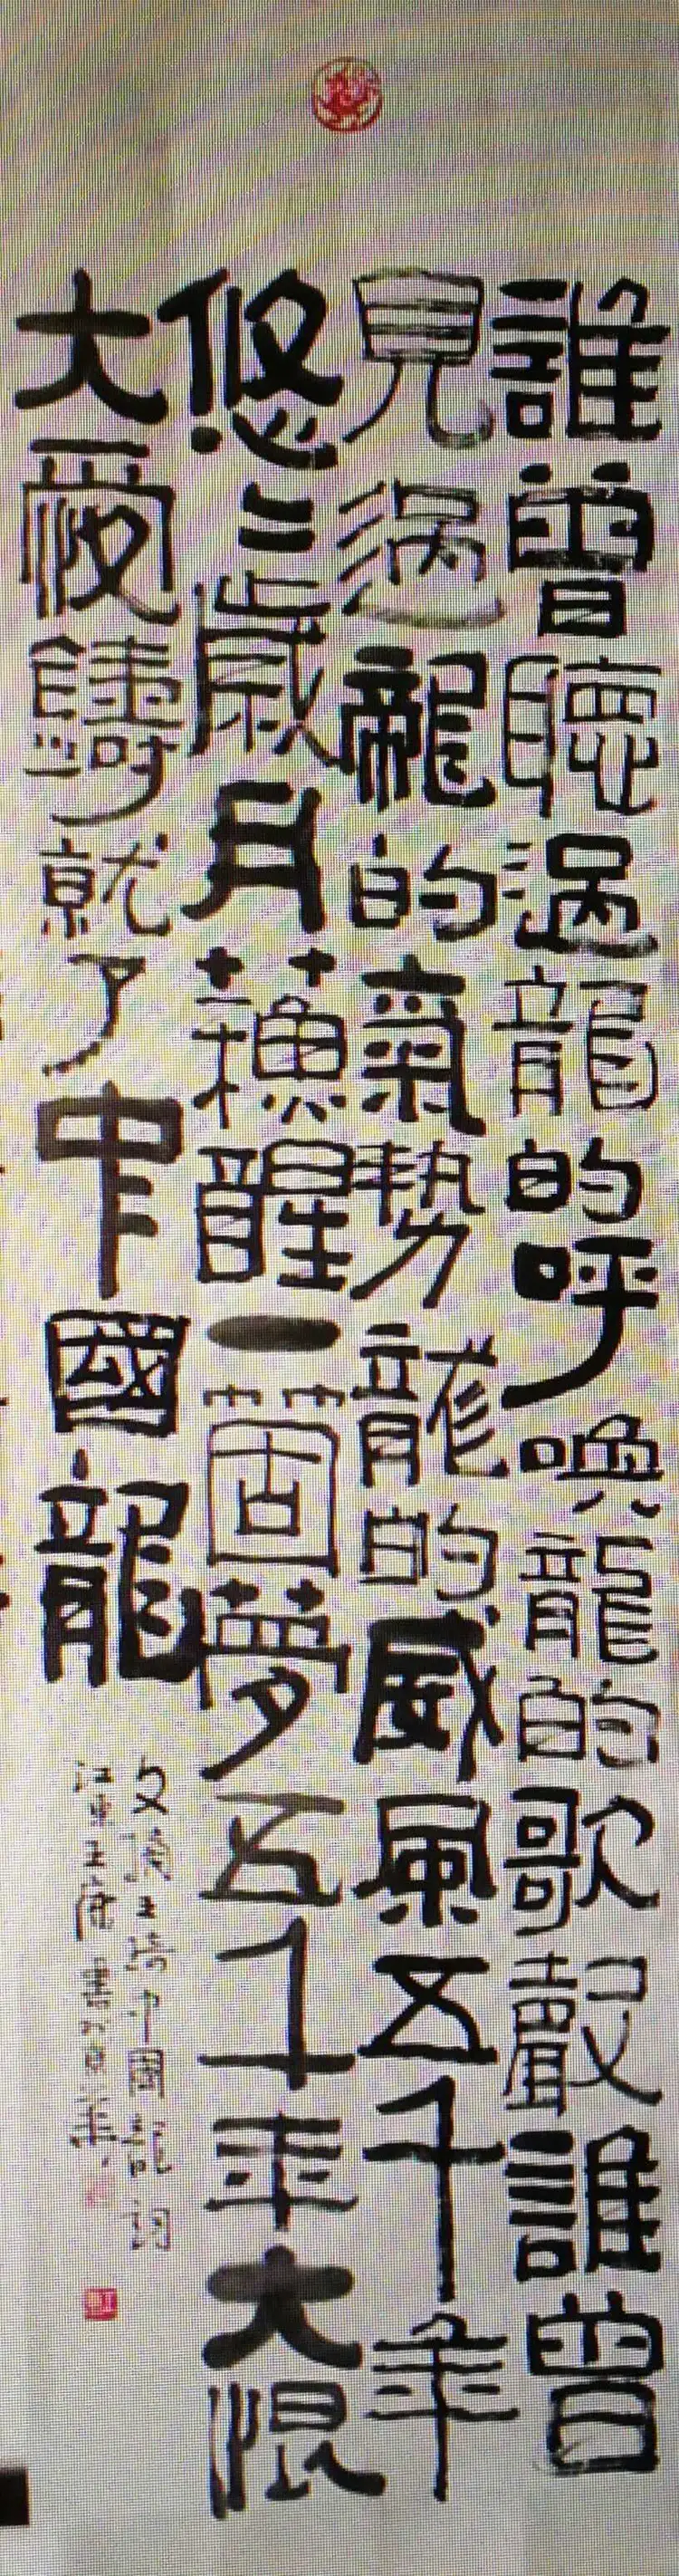 誰曾聽過龍的呼喚龍的歌聲誰曾
見過龍的氣勢龍的威風五千年
悠〻歲月蘓醒一箇夢五千年大恨
大愛鑄就了中國龍
中國龍詞
江東王